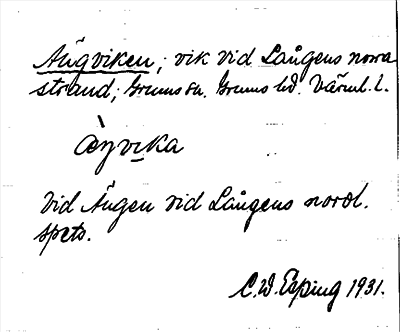 Ängviken; vik vid Långens norra
strand; Grums sn. Grums hd. Värml. l.
æ̀ŋvika
Vid Ängen vid Långens nordl.
spets.
C.W. Esping 1931.